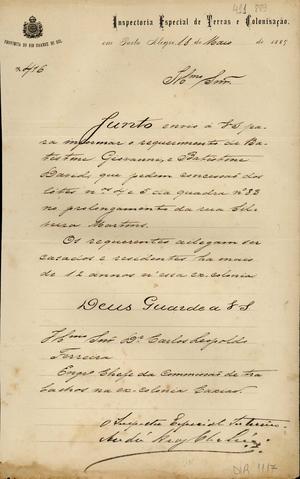 491 889
Inspectoria Especial de Terras e Colonisação,
PROVINCIA DO RIO GRANDE DO SUL
em Porto Alegre, 18 de Maio de 1885
N. 416
Illmo Snr.
Junto envio a V S pa
ra informar o requerimento de Ba
tistone Giovanne, e Batistone
Davide, que pedem concessão dos
lótes nos 4 e 5 da quadra nº 33
no prolongamento da rua Sil
veira Martins.
Os requerentes allegam ser
casados e residentes ha mais
de 12 annos n'essa ex-colonia
Deus Guarde a V S
Illmo Snr Dr Carlos Leopoldo
Ferreira
Engro Chefe da Commissão de tra
balhos na ex-colonia Caxias.
O Inspector Especial Interino
DIR 1117